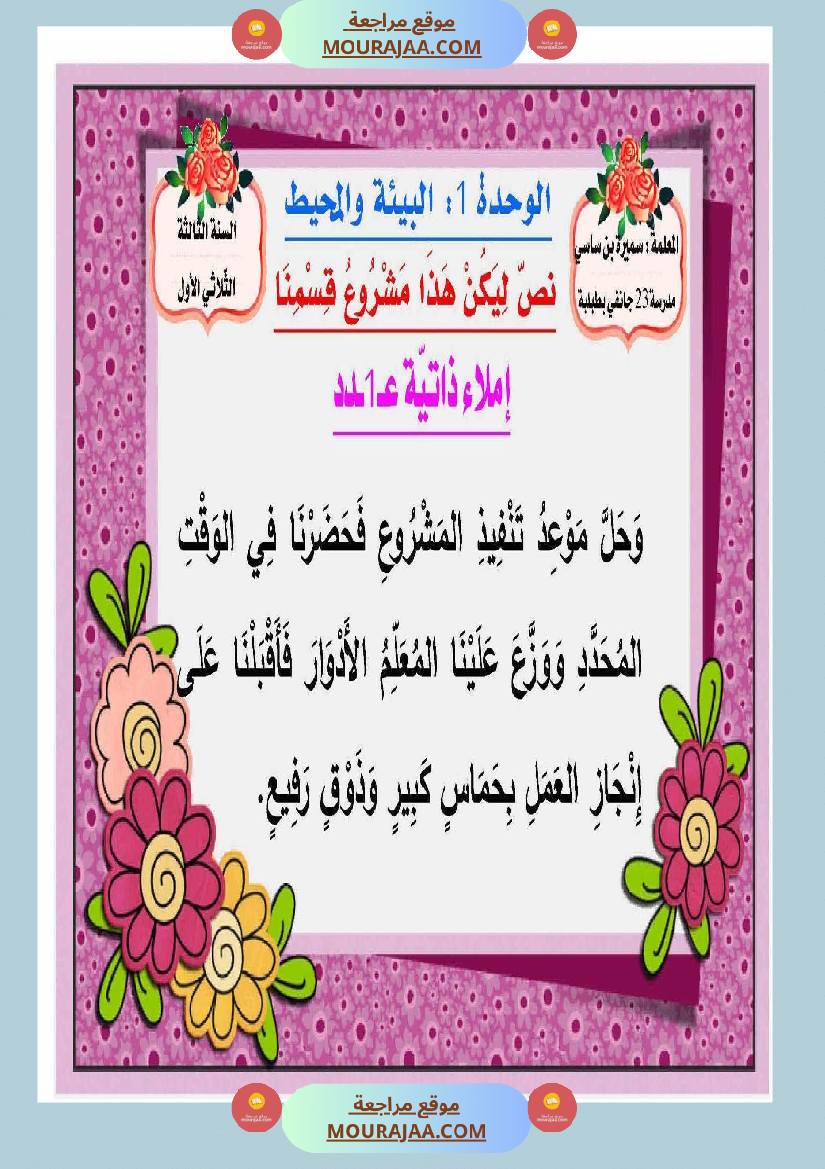 موقع مراجعة
MOURAJAA.COM
الوحدة 1: البيئة والمحيط
السنة الثالثة
الثّلاثي الأول
المعلمة : سميرة بن ساسي
مدرسة 23 جانفي بطبلبة
نصّ لِيَكُنْ هَذَا مَشْرُوعُ قِسْمِنَا
إملاء ذاتيّة عـ1ـدد
وَحَلَّ مَوْعِدُ تَنْفِيذِ المَشْرُوعِ فَحَضَرْنَا فِي الوَقْتِ
المُحَدَّدِ وَوَزَّعَ عَلَيْنَا المُعَلِّمُ الأَدْوَارَ فَأَقْبَلْنَا عَلَى
إِنْجَازِ العَمَلِ بِحَمَاسٍ كَبِيرٍ وَذَوْقٍ رَفِيعٍ.
موقع مراجعة
MOURAJAA.COM